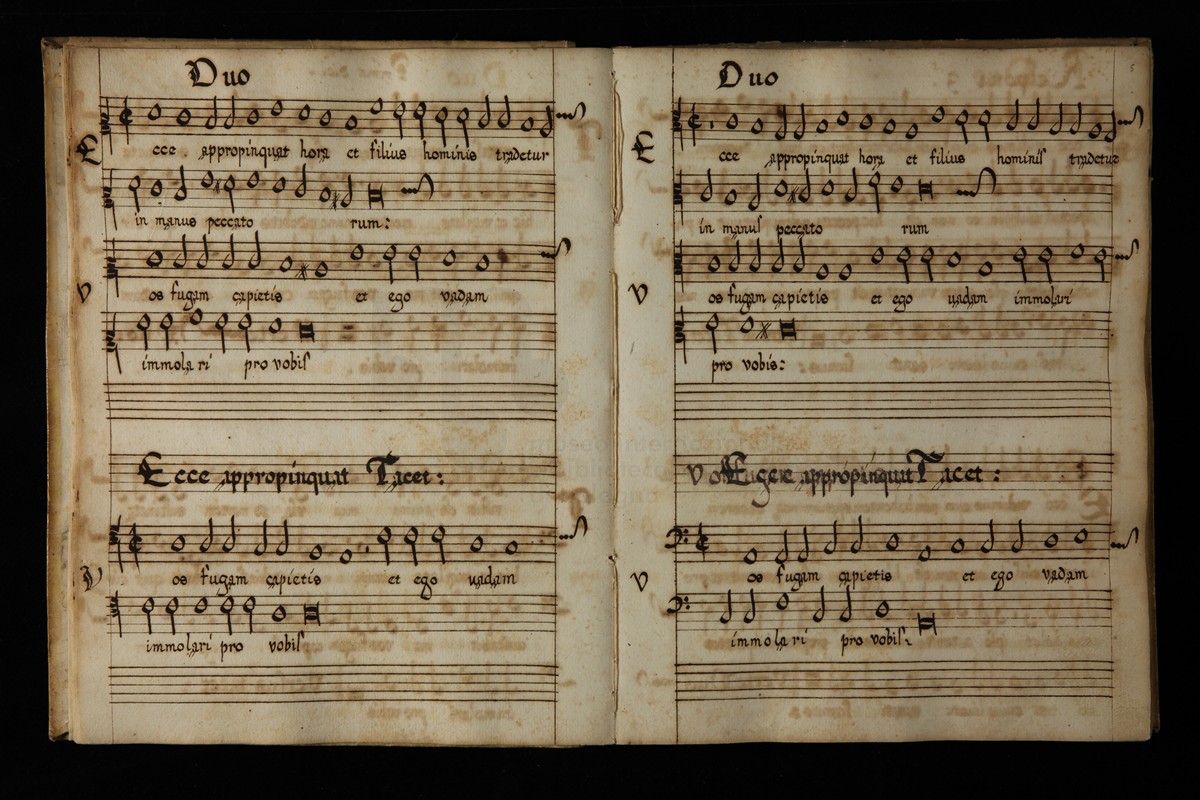 Duo
Ecce appropinquat hora et filius hominis tradetur
in manus peccato rum:
Vos fugam capietis et ego vadam
immola ri pro vobis
Ecce appropinquat Tacet:
Vos fugam capietis et ego uadam
immolari pro vobis
5
Duo
Ecce appropinquat hora et filius hominis tradetur
in manus peccato rum
Vos fugam capietis et ego uadam immolari
pro vobis:
Ecce appropinquat Tacet:
Vos fugam capietis et ego vadam
immola ri pro vobis: